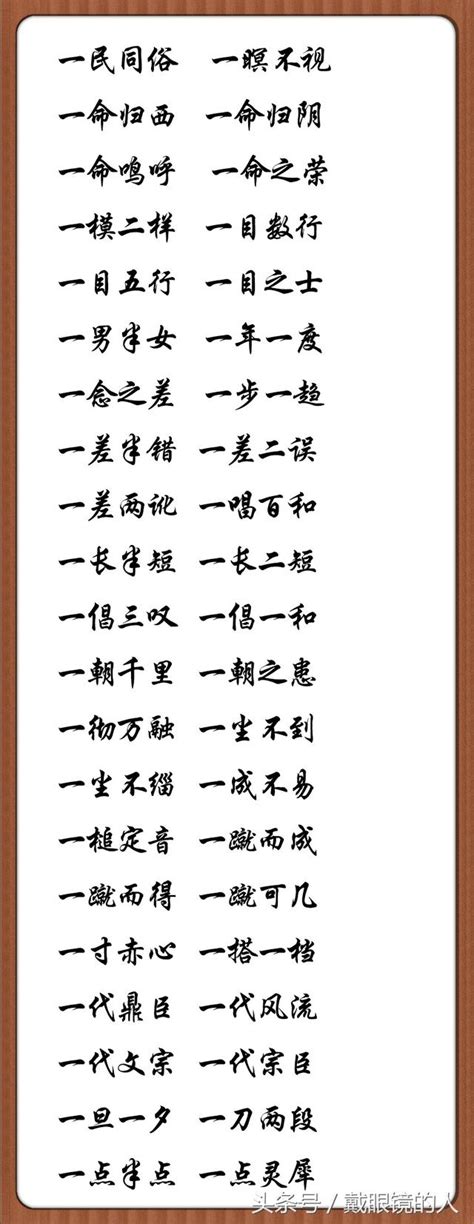 一民同俗 一瞑不视
一命归西 一命归阴
一命鸣呼 一命之荣
一模二样 一目数行
一目五行 一目之士
一男半女 一年一度
一念之差 一步一趋
一差半错 一差二误
一差两讹 一唱百和
一长半短 一长二短
一倡三叹 一倡一和
一朝千里 一朝之患
一彻万融 一尘不到
一尘不缁 一成不易
一槌定音 一蹴而成
一蹴而得 一蹴可几
一寸赤心 一搭一档
一代鼎臣 一代风流
一代文宗 一代宗臣
一旦一夕 一刀两段
一点半点 一点灵犀
头条号/戴眼镜的人